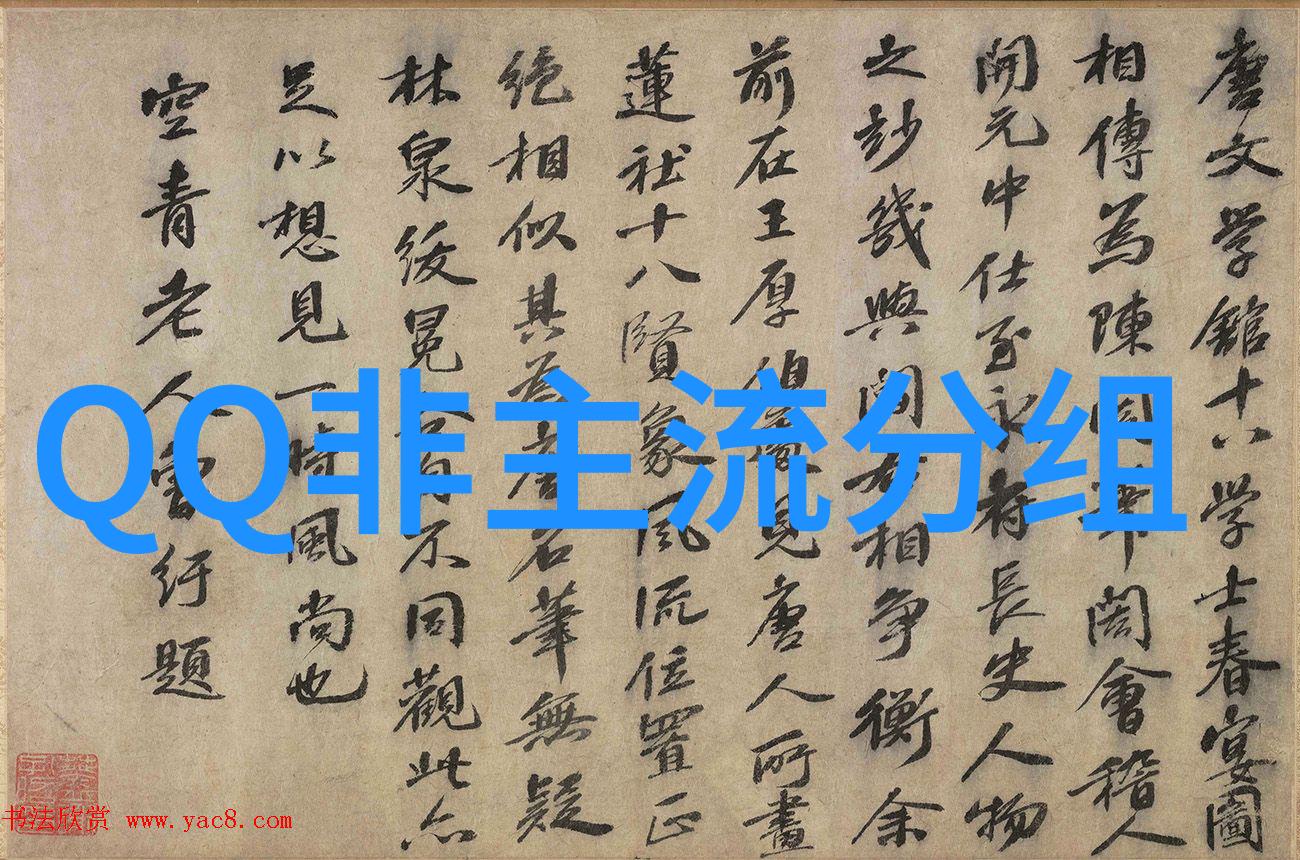 唐文学館十八学士春宴圖
相傳為陳閎筆閎會稽人
開元中仕至永府長史人物
之妙幾與閻 相爭衡余
前在王厚伯 見唐人所畫
蓮社十八賢象風流位置正
绝相似其為唐名筆無疑
林泉绂冕 不同觀此亦
足以想見一時風尚也
空青老人曾紆題
QQ非主流分组
书法欣赏 www.yac8.com